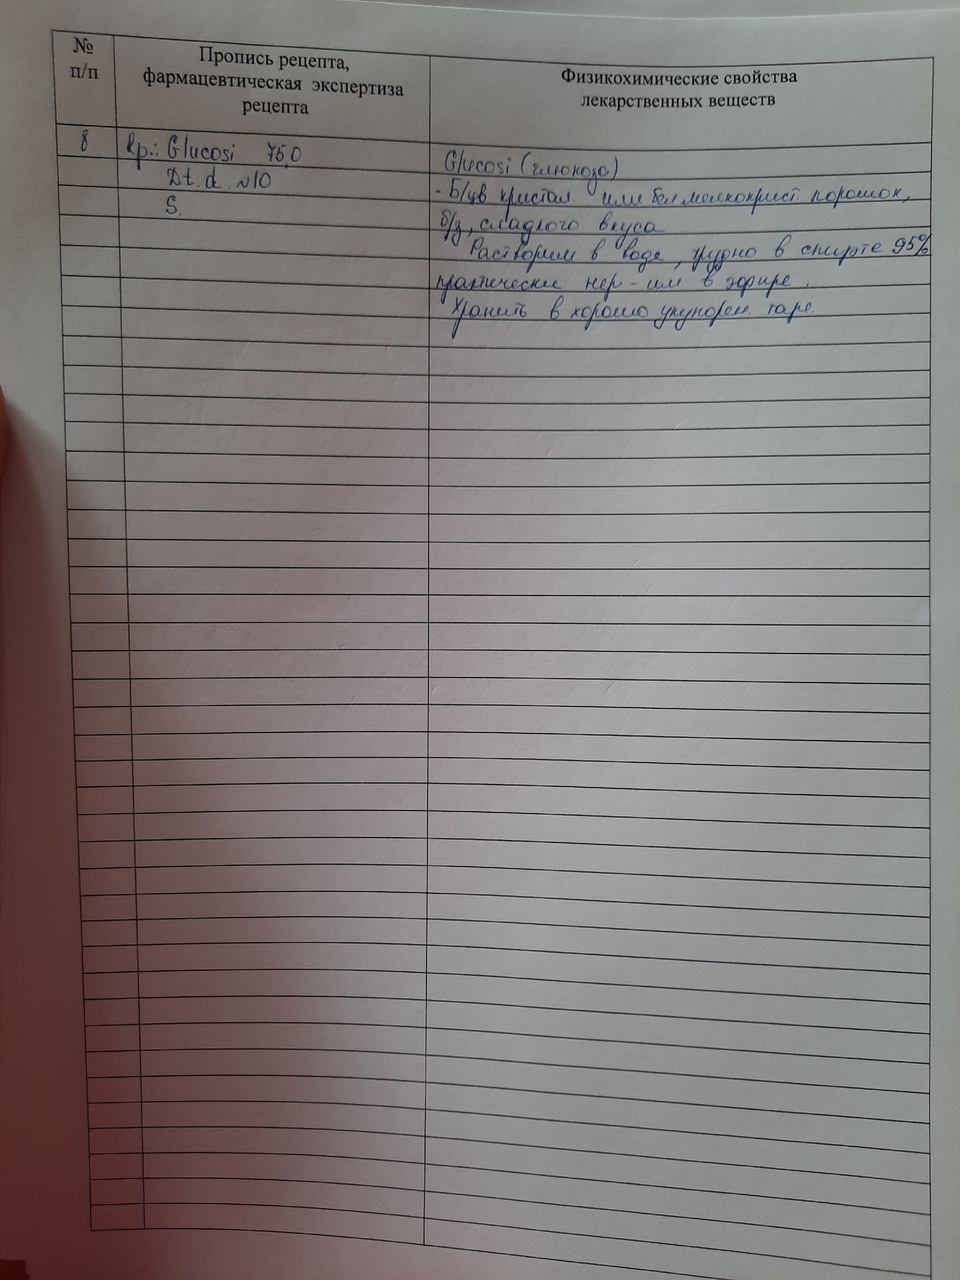 №
п/п
Пропись рецепта,
фармацевтическая экспертиза
рецепта
Физикохимические свойства
лекарственных веществ
8
Rp.: Glucosi 75,0
D.t.d. №10
S.
Glucosi (глюкоза)
- Б/цв кристал или бел мелкокрист. порошок,
б/з, сладкого вкуса
Растворим в воде, трудно в спирте 95%
практически нер-им в эфире.
Хранить в хорошо укупорен. таре.